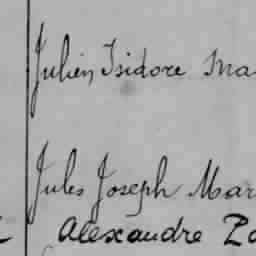 Julien Isidore Ma
Jules Joseph Mar
Alexandre